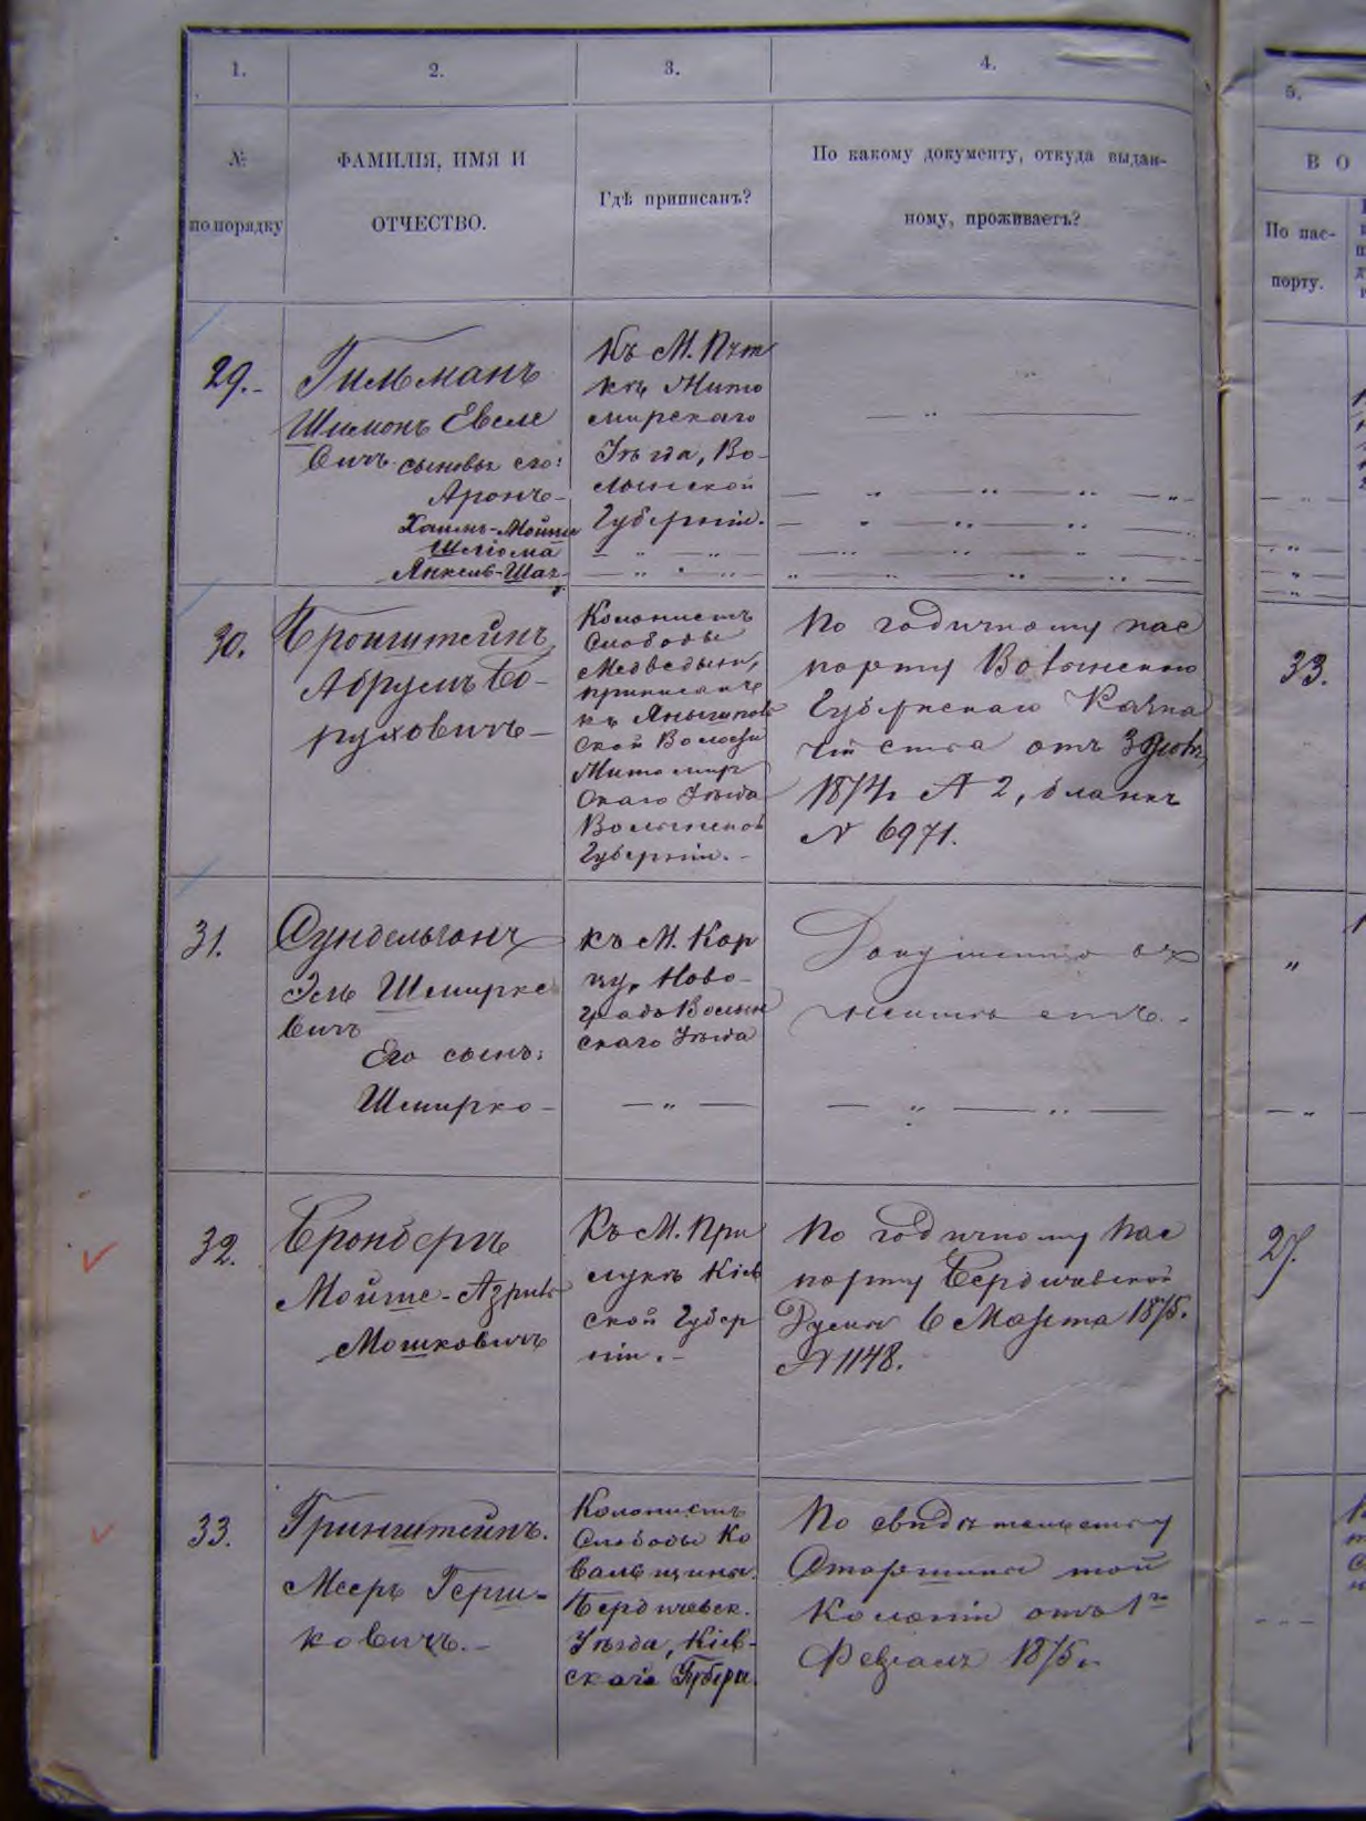 1.
2.
3.
4.
5.
№
по порядку
ФАМИЛІЯ, ИМЯ И
ОТЧЕСТВО.
Гдѣ приписанъ?
По какому документу, откуда выдан-
ному, проживаетъ?
В О
По пас-
порту.
29.
Гильманъ
Шимонъ Евеле
вичъ сыновья его:
Аронъ
Хаимъ-Мойше
Шліома
Янкель-Шая
Къ М.
Жито
мирскаго
Уѣзда, Во-
лынской
Губерніи.
30.
Бронштейнъ
Абрумъ Бо-
руховичъ
Колонистъ
Слободы
Медведыхи,
приписанъ
къ
ской Волости
Житомир
скаго Уѣзда
Волынской
Губерніи.
По годичному пас
порту Волынскаго
Губернскаго Казна
чейства отъ 3
1874г № 2, бланкъ
№ 6971.
33.
31.
Сундельзонъ
Эль Шмирке
вичъ
Его сынъ:
Шмирко
къ М. Кор
цу, Ново-
градъ Волын
скаго Уѣзда
Документа
32.
Бронбергъ
Мойше-Азрил
Мошковичъ
Къ М. При
лукѣ Кіев
ской Губер
ніи.
По годичному пас
порту Бердичевской
Думы 6 Марта 1875.
№ 1148.
27.
33.
Гринштейнъ.
Мееръ Герш-
ковичъ.
Колонистъ
Слободы Ко
вальщины.
Бердичевск.
Уѣзда, Кіев-
скаго Губерн.
По свидѣтельству
Старшины той
Колоніи отъ 1го
Февраля 1875г.